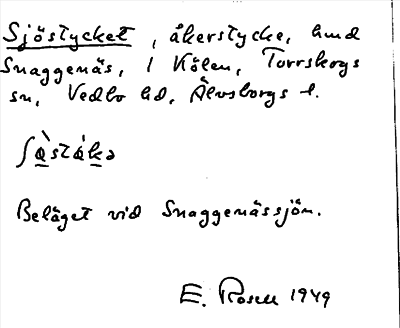 Sjöstycket, åkerstycke, hmd
Snaggenäs, 1 Kölen, Torrskogs
sn, Vedbo hd, Älvsborgs l.
ʃɑ̀stákə
Beläget vid Snaggenässjön.
E. Rosell 1949